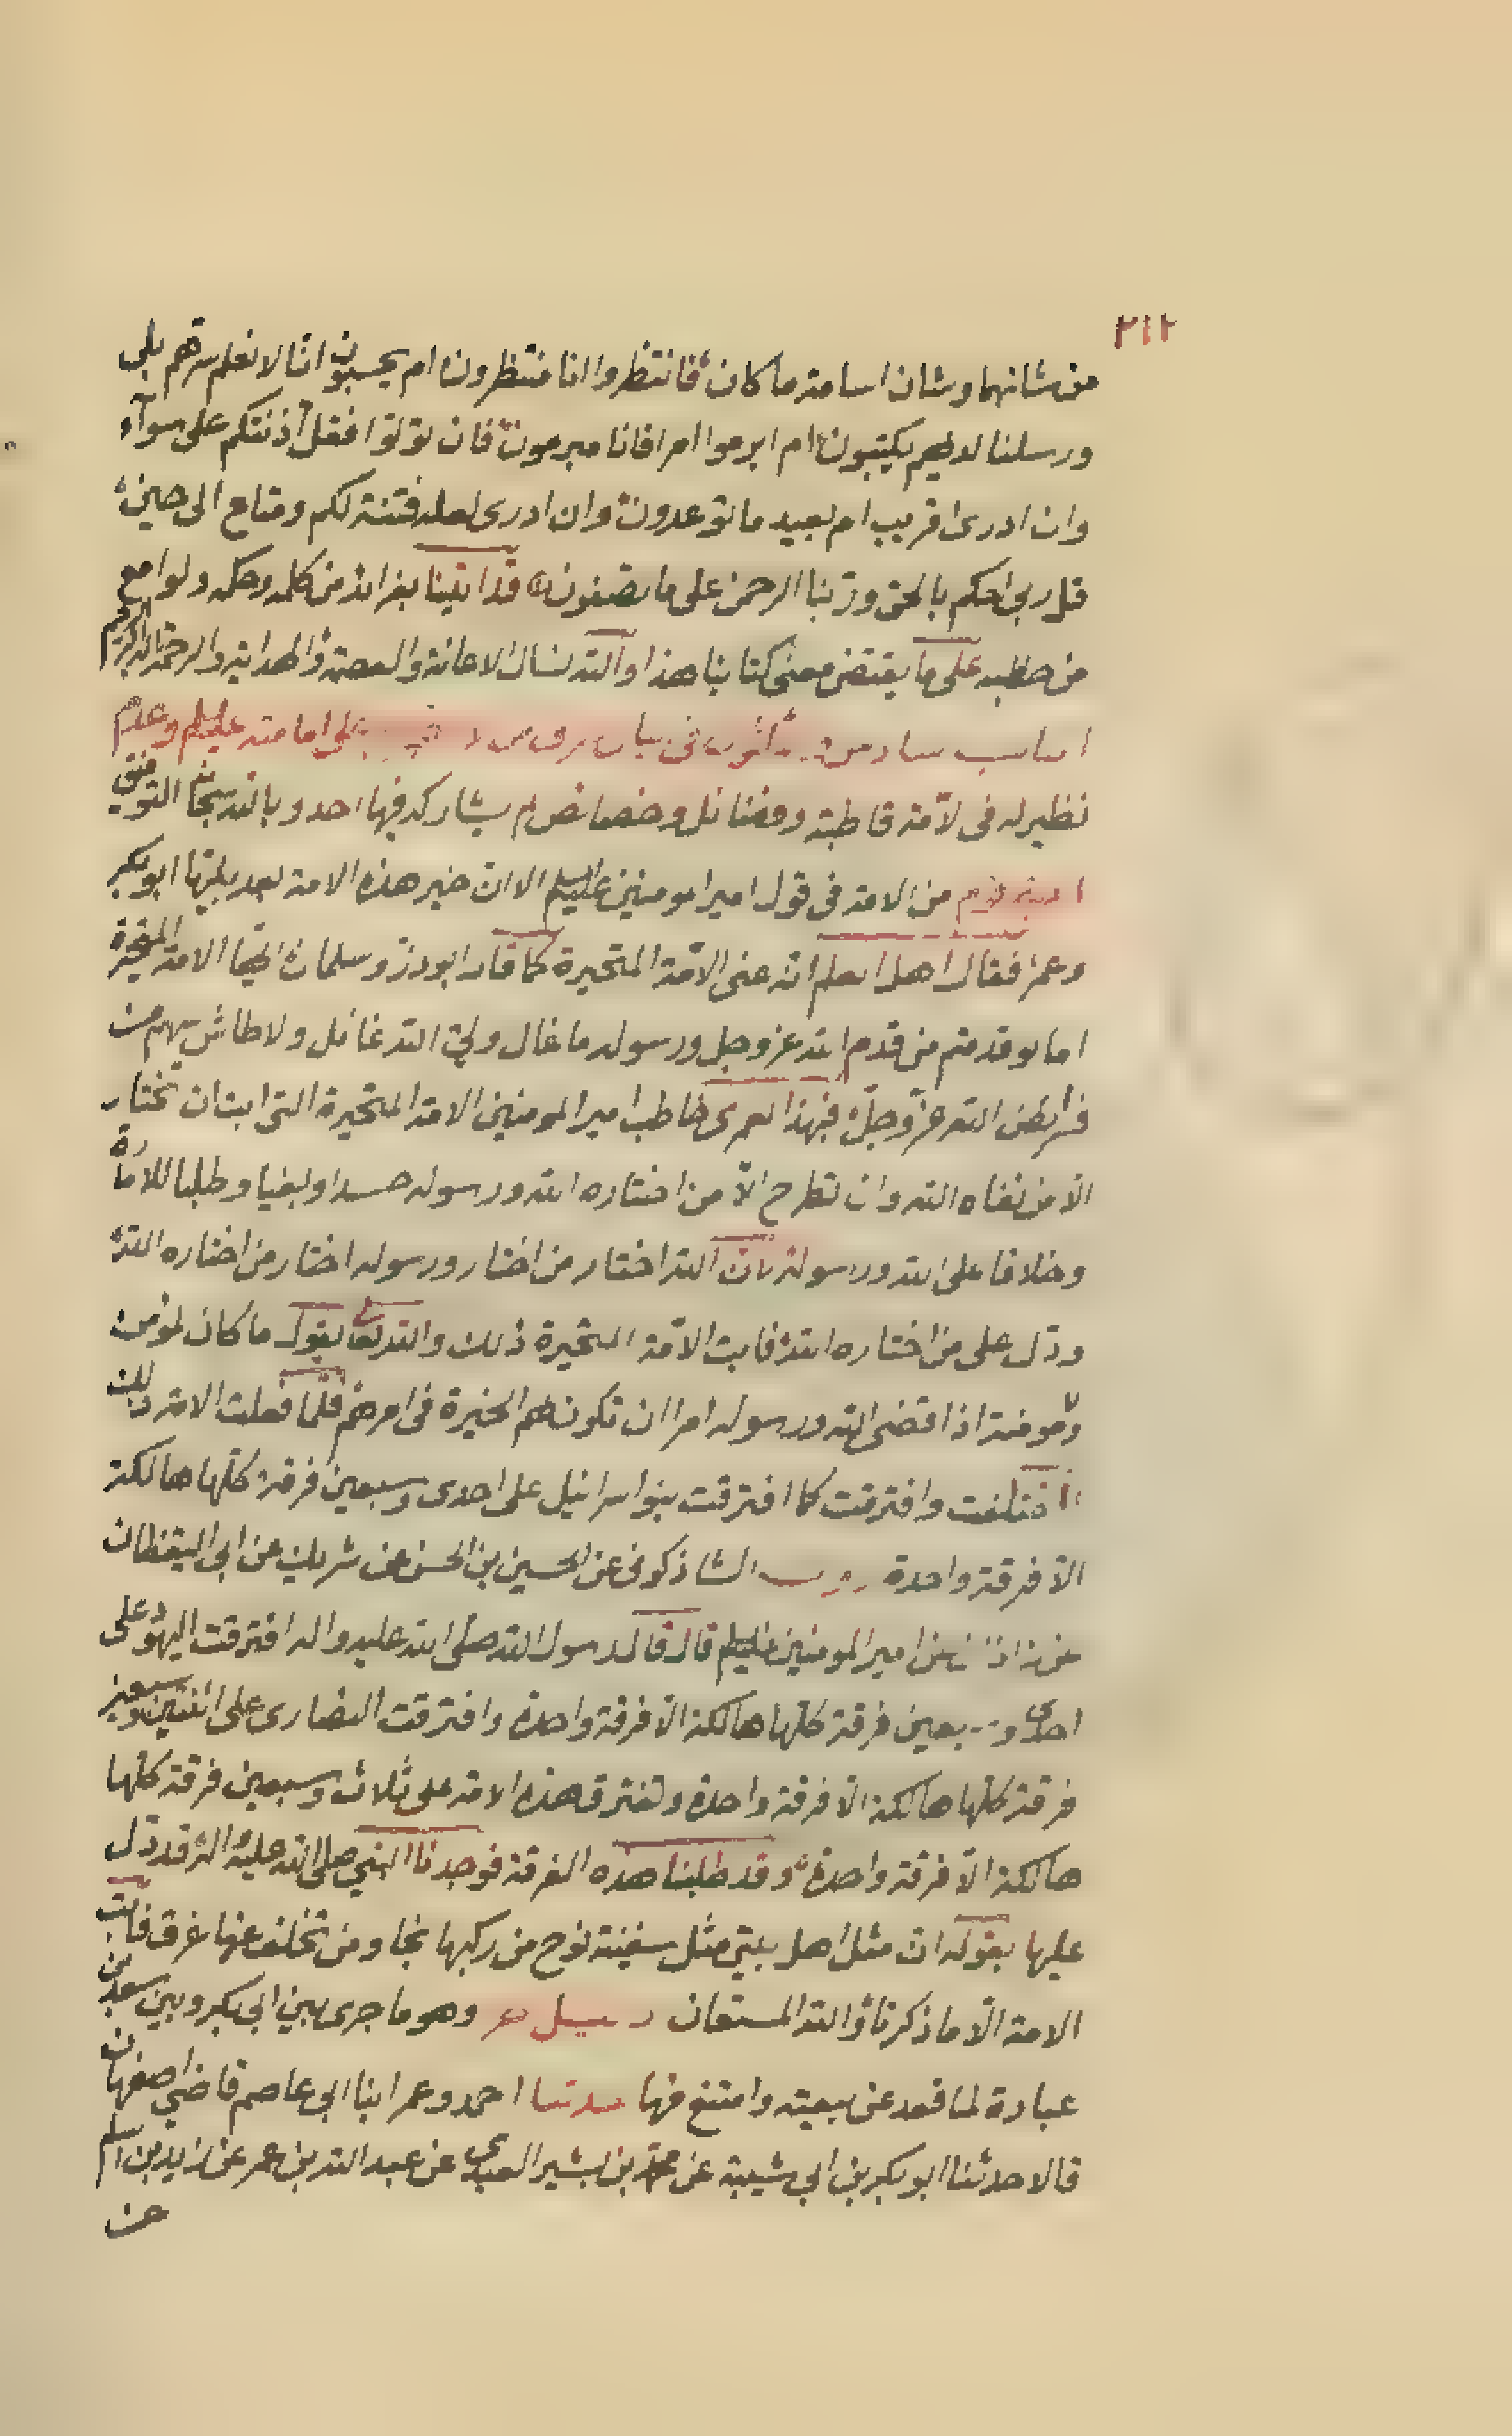 ٢١٢
من شانهما وشان اسامة ما كان فانتظروا انا منتظرون ام يحسبون انّا لا نعلم سرّهم بلى
ورسلنا لديهم يكتبون ام ابرموا امرا فانا مبرمون فان تولوا فقل آذنتكم على سوآء
وان ادرى اقريب ام بعيد ما توعدون وان ادرى لعله فتنة لكم ومتاع الى حين
قل ربى احكم بالحق وربّنا الرحمن على ما تصفون قد اتينا بغرائد من كلمه وحكمه ولوامع
من خطبه على ما يقتضى معنى كتابنا هذا والله نسال الاعانة والعصمة والهداية والرحمة
فى بيان على امامته عليه السلم وعدم
نظير له فى لامّة قاطبة وفضائل وخصائص لم يشاركه فيها احد وبالله سبحانه التوفيق
من الامة فى قول امير المومنين عليه السلم الا ان خير هذه الامة بعد نبيّها ابو بكر
وعمر فقال اهل العلم انه عنى الامّة المتحيرة كما قال ابوذر وسلمان ايّتها الامة المتحيّرة
اما لو قدمتم من قدم الله عز وجل ورسوله ما عال ولىّ الله عائل ولا طاش سهم من
فرايض الله عزّ وجلّ فبهذا لعمرى خاطب امير المومنين الامة المتحيرة التى ابت ان تختار
الّا من نفاه الله وان تطرح الّا من اختاره الله ورسوله حسدا وبغيا وطلبا للامارة
وخلافا على الله ورسوله لانّ الله اختار من اختار ورسوله اختار من اختاره الله
ودّل على من اختاره الله فابت الامّة المتحيّرة ذلك والله تعالى يقول ما كان لمؤمن
ولا مومنة اذا قضى الله ورسوله امرا ان تكون لهم الخيرة فى امرهم فلمّا فعلت الامة ذلك
اختلفت وافترقت كما افترقت بنو اسرائيل على احدى وسبعين فرقة كلّها هالكة
الّا فرقة واحدة الشاذكونى عن الحسين بن الحسن عن شريك عن ابى اليقظان
عن زاذان عن امير المومنين عليه السلم قال قال رسول الله صلّى الله عليه واله افترقت اليهود على
احدى وسبعين فرقة كلّها هالكة الّا فرقة واحدة وافترقت النصارى على اثنتين وسبعين
فرقة كلّها هالكة الّا فرقة واحدة وتفترق هذه الامة على ثلاث وسبعين فرقة كلّها
هالكة الّا فرقة واحدة وقد طلبنا هذه الفرقة فوجدنا النبى صلى الله عليه واله قد دّل
عليها بقوله ان مثل اهل بيتى مثل سفينة نوح من ركبها نجا ومن تخلف عنها غرق فابت
الامة الّا ما ذكرنا والله المستعان وهو ما جرى بين ابى بكر وبين سعد بن
عبادة لما قعد عن بيعته وامتنع منها حدثنا احمد وعمر ابنا ابى عاصم قاضى اصفهان
قالا حدثنا ابو بكر بن ابى شيبة عن محمد بن بشير العبدى عن عبد الله بن عمر عن زايد بن اسلم
عن